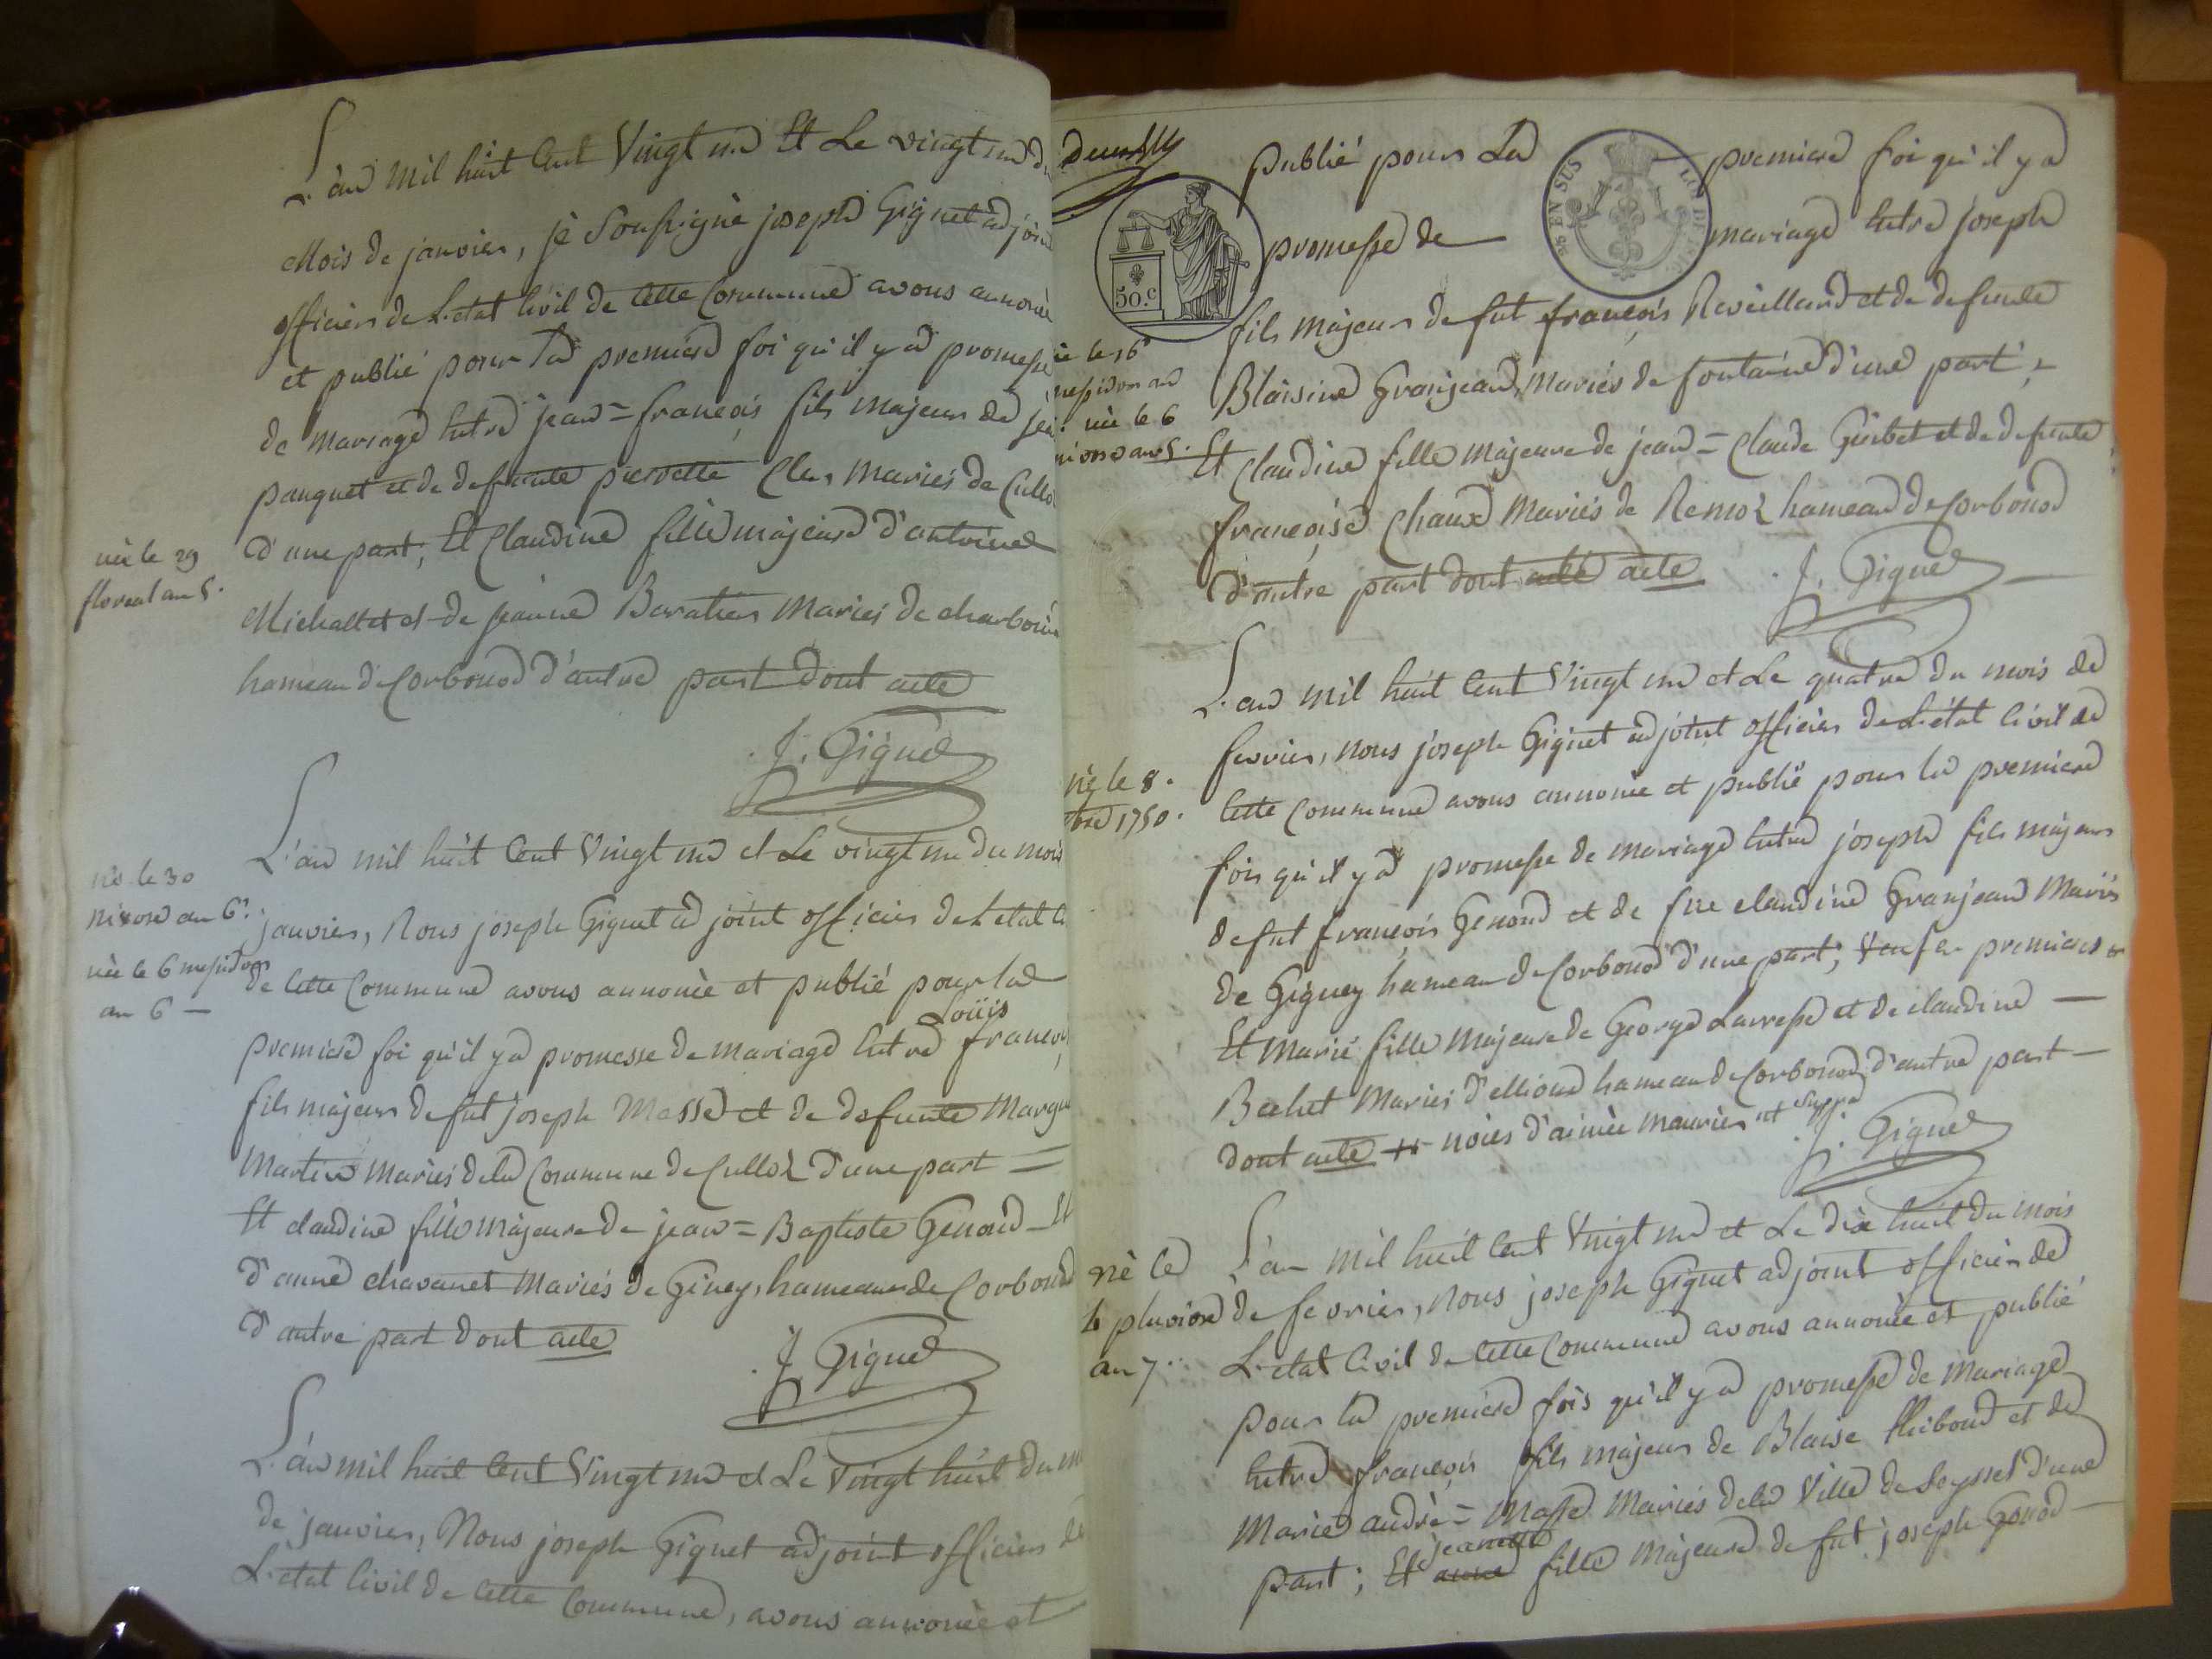 L'an mil huit cent vingt un Et Le vingt un du
Mois de janvier, je Soussigné joseph Gignet adjoint
officier de L'etat Civil de Cette Commune avons annoncé
et publié pour La premiere foi qu'il y a promesse
de mariage Entre jean=françois fils majeur de
panquet et de defunte pierrette Cler Mariés de Culloz
d'une part, Et Claudine fille majeure d'antoine
née le 29
floreal an 5.
Michallet et de jeanne Baratier Mariés de charbon
hameau de Corbonod d'autre part dont acte
J. Gignet
L'an mil huit Cent Vingt un et Le vingt un du mois
né le 30
nivose an 6.
janvier, Nous joseph Gignet adjoint officier de L'etat
née le 6 messidor
an 6 —
de Cette Commune avons annoncé et publié pour la
premiere foi qu'il y a promesse de mariage Entre Loüis françois
fils majeur de fut joseph Masse et de defunte Margu
Martin Mariés de la Commune de Culloz d'une part =
Et claudine fille majeure de jean=Baptiste Genoud Et
d'anne chavanet Mariés de Giney, hameau de Corbonod
d'autre part dont acte
J. Gignet
L'an mil huit Cent Vingt un et Le Vingt huit du
de janvier, Nous joseph Gignet adjoint officier de
L'etat Civil de Cette Commune, avons annoncé et
publié pour La premiere foi qu'il y a
promesse de mariage Entre joseph
96 EN SUS
50.c
fils majeur de fut françois Reveilland et de defunte
né le 16
messidor an
Blaisine Granjean, Mariés de fontaine d'une part,
née le 6
nivose an 5.
Et Claudine fille majeure de jean=Claude Guibet et de defunte
françoise Chaux Mariés de Remoz hameau de Corbonod
d'autre part dont acte acte
J. Gignet
L'an mil huit Cent Vingt un et Le quatre du mois de
fevrier, nous joseph Gignet adjoint officier de L'état Civil de
né le 8.
1750.
Cette Commune avons annoncé et publié pour la premiere
fois qu'il y a promesse de mariage Entre joseph fils majeur
de fut françois Genoud et de fue claudine Granjean Mariés
de Gigney hameau de Corbonod d'une part; Veuf en premieres
Et Marie fille Majeure de George Lavresse et de claudine —
Bachet Mariés d'ellioud hameau de Corbonod d'autre part —
dont acte noies d'aimée Maurier
J. Gignet
L'an mil huit Cent Vingt un et Le dix huit du mois
né le
4 pluviose
an 7
de fevrier, Nous joseph Gignet adjoint officier de
L'etat Civil de Cette Commune avons annoncé et publié
pour La premiere fois qu'il y a promesse de Mariage
Entre françois fils majeur de Blaise Thiboud et de
Marie andré=Masse Mariés de la Ville de Seyssel d'une
part; Et anne jeanne fille Majeure de fut joseph Gonod